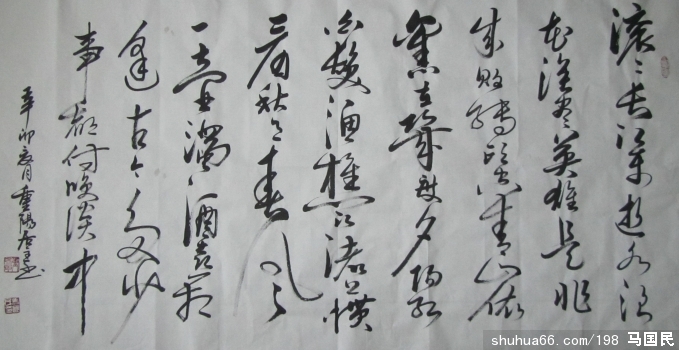 滚滚长江東逝水浪
花淘尽英雄是非
成败转头空青山依
舊在幾度夕陽红
白髮渔樵江渚上慣
看秋月春风
一壶濁酒喜相
逢古今多少
事都付笑谈中
辛卯夏月重陽
shuhua66.com/198 马国民